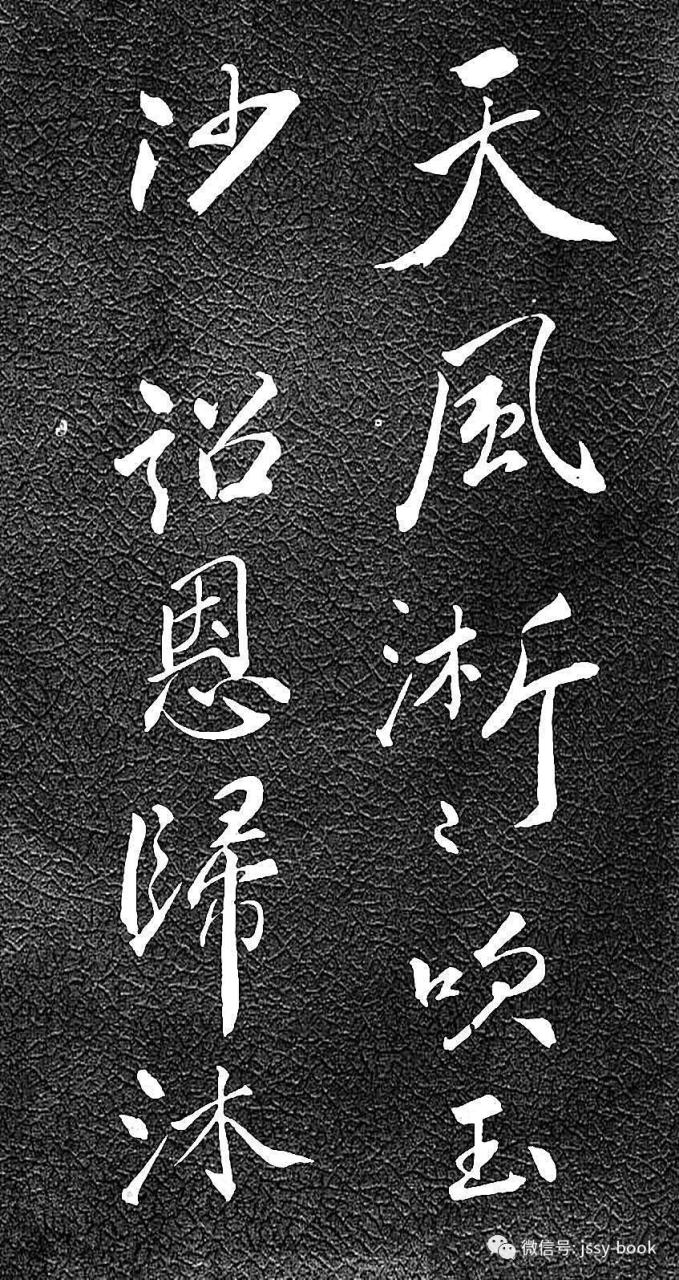 天風淅〻吹玉
沙詔恩歸沐
微信号: jssy-book